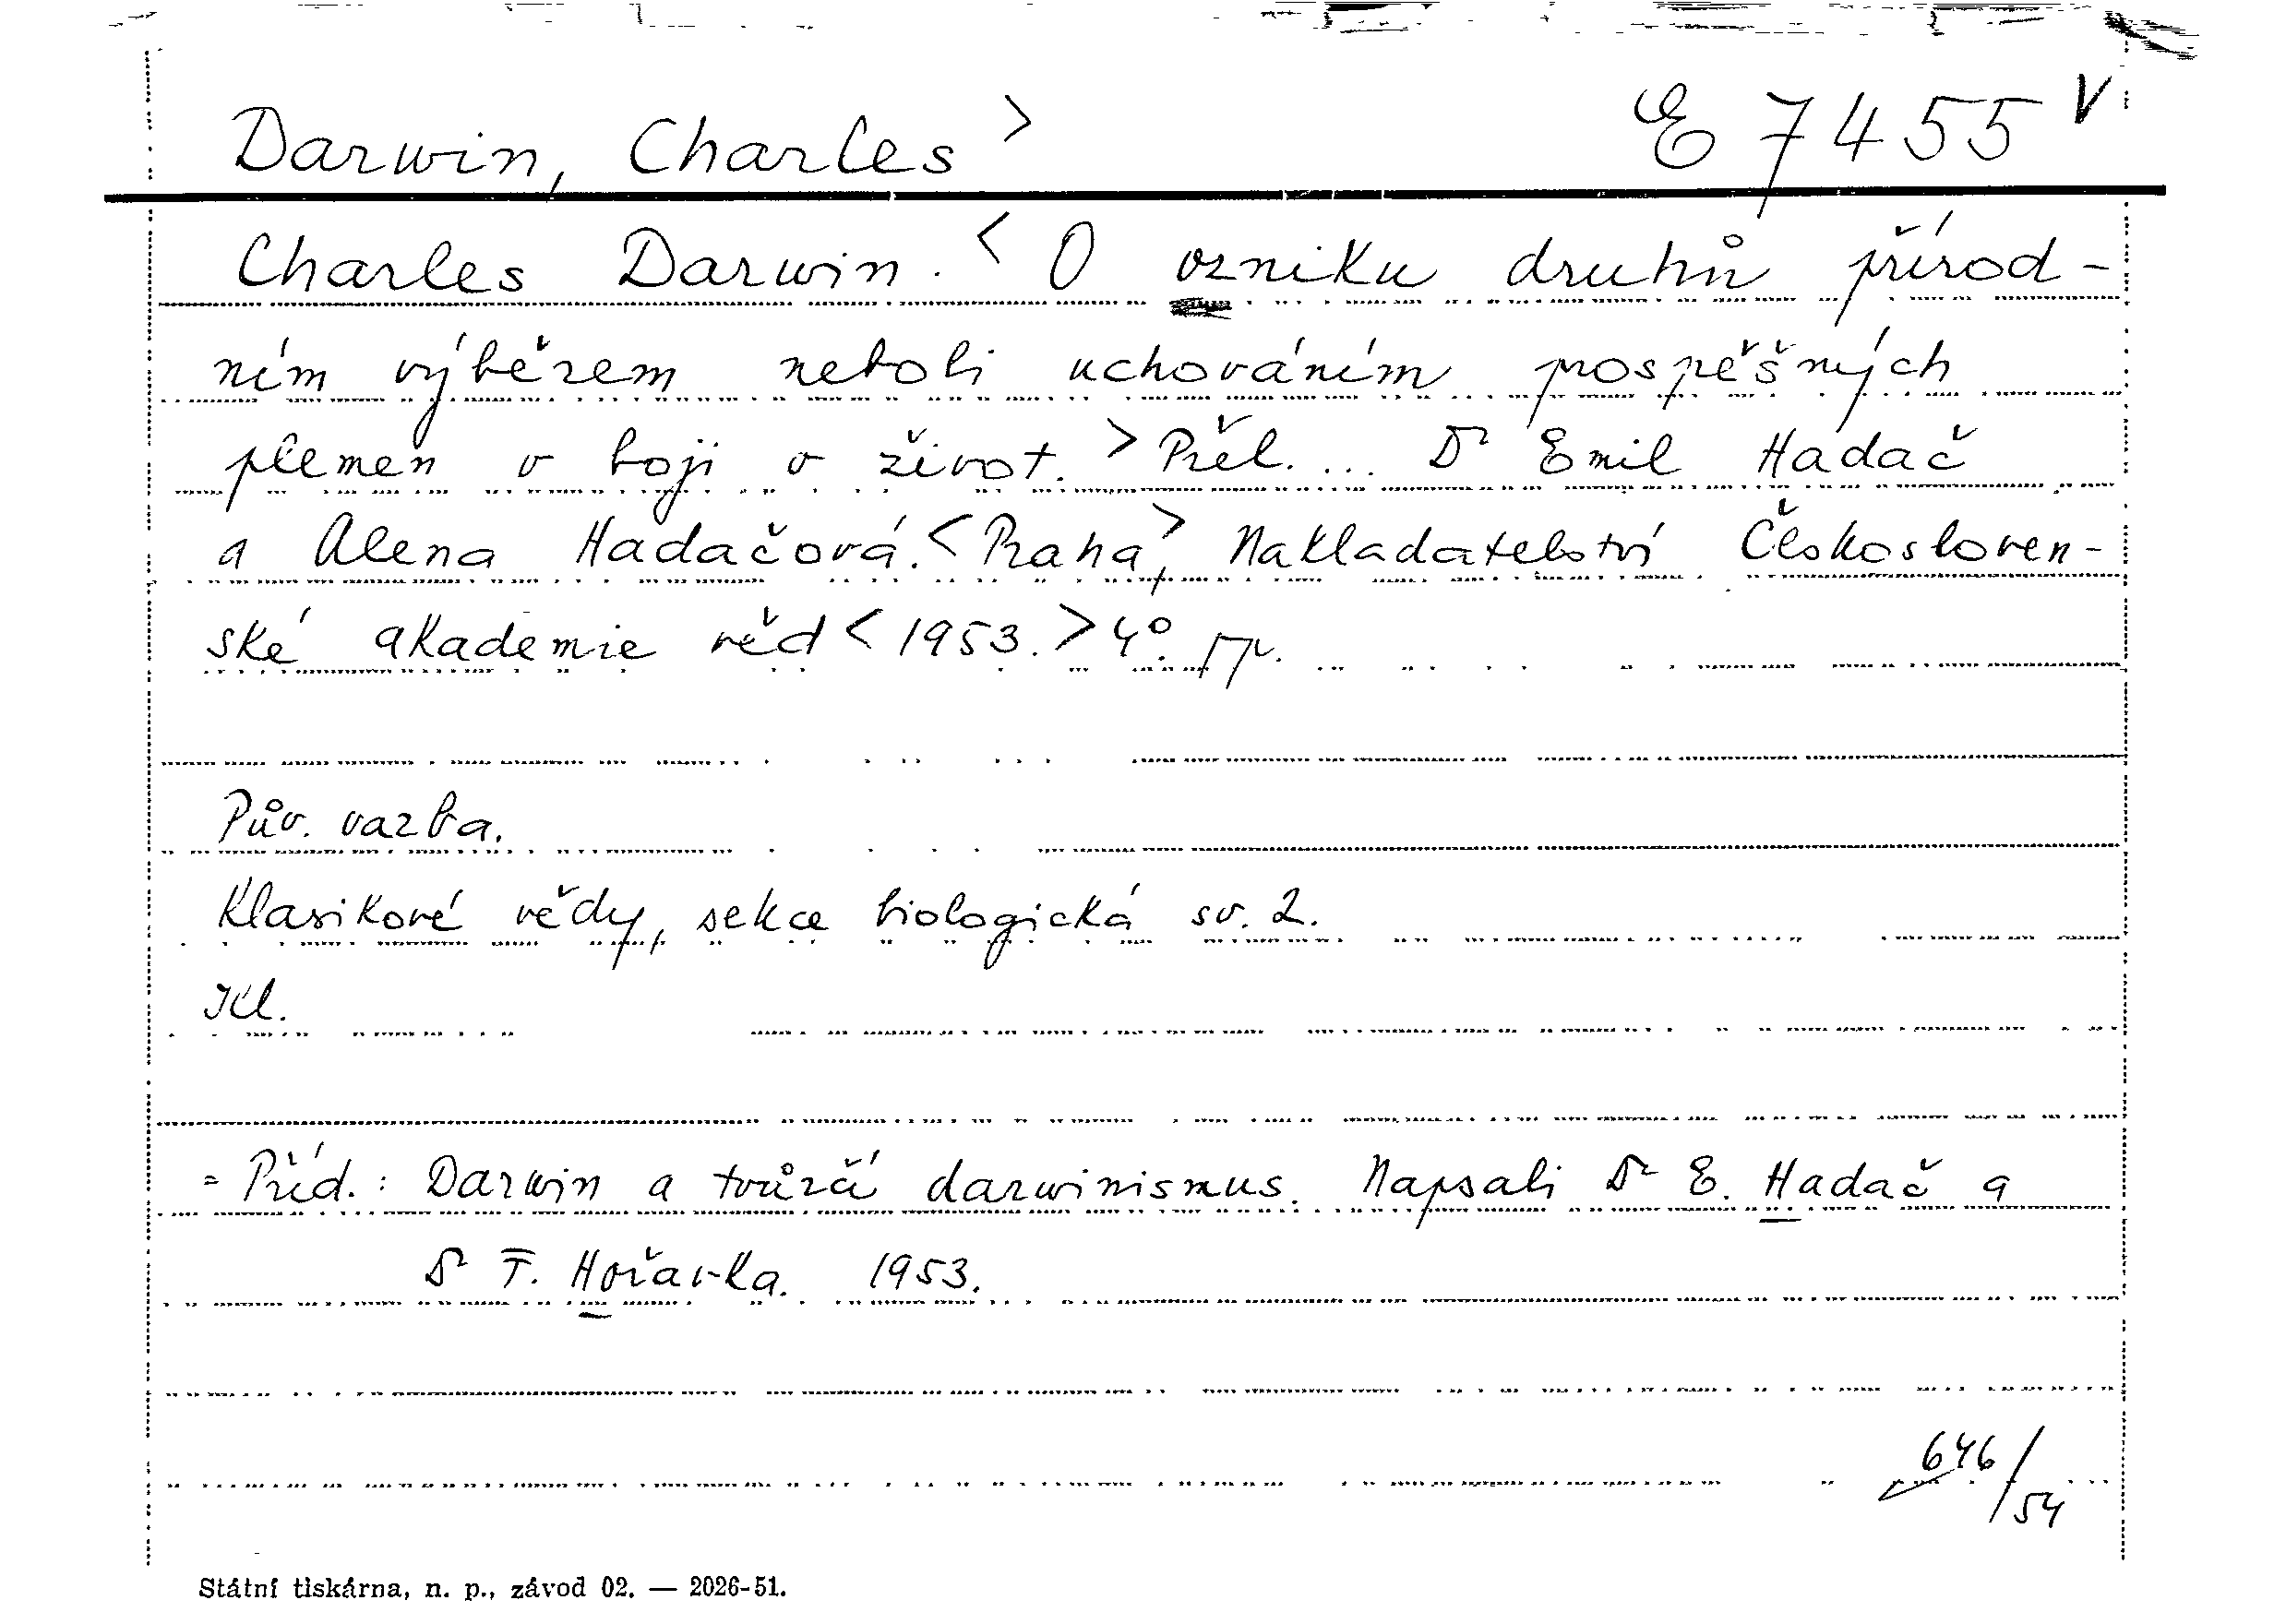 Darwin, Charles > E 7455 V
Charles Darwin. < O vzniku druhů přírod-
ním výběrem neboli uchováním prospěšných
plemen v boji o život. > Přel. ... Dr Emil Hadač
a Alena Hadačová. < Praha, > Nakladatelství Českosloven-
ské akademie věd < 1953. > 4°.
Pův. vazba.
Klasikové vědy, sekce biologická sv. 2.
= Příd.: Darwin a tvůrčí darwinismus. Napsali Dr E. Hadač a
Dr F. Hořavka. 1953.
646/54
Státní tiskárna, n. p., závod 02. — 2026-51.